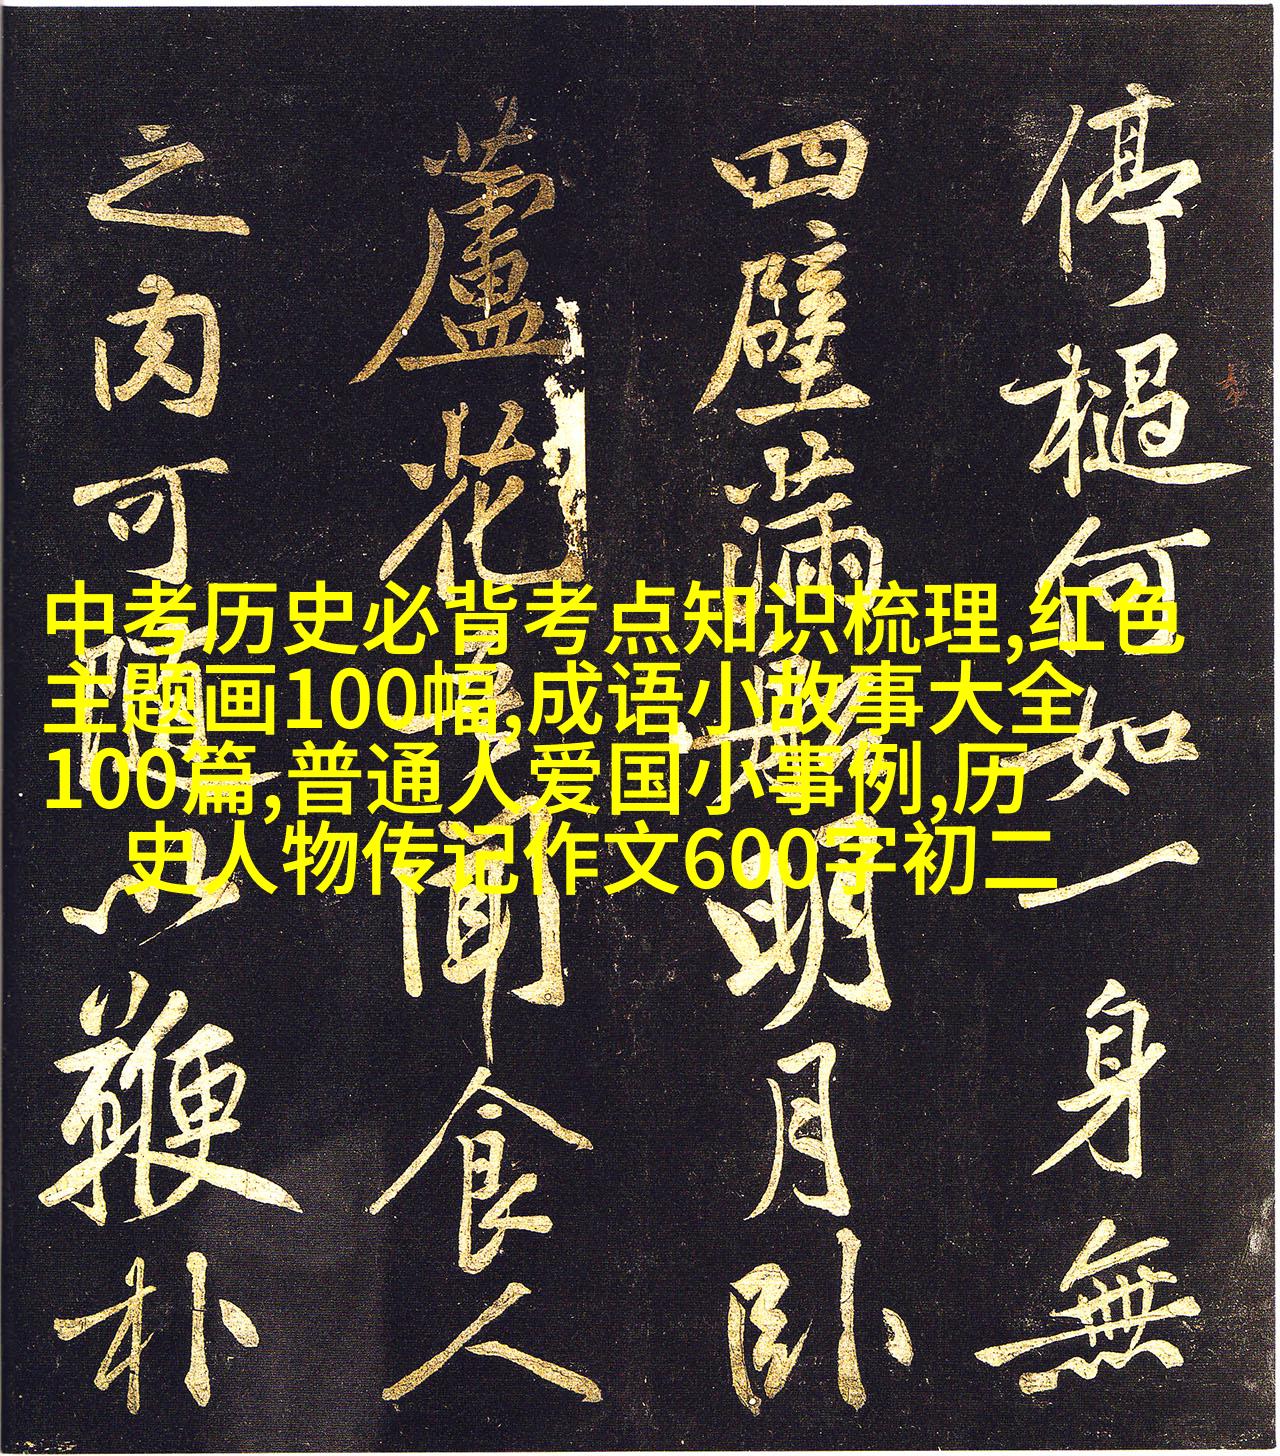 中考历史必背考点知识梳理,红色
主题画100幅,成语小故事大全
100篇,普通人爱国小事例,历
史人物传记作文600字初二
停何如一身無
四壁滿明月卧
蘆花聞食人
之肉可以鞭朴